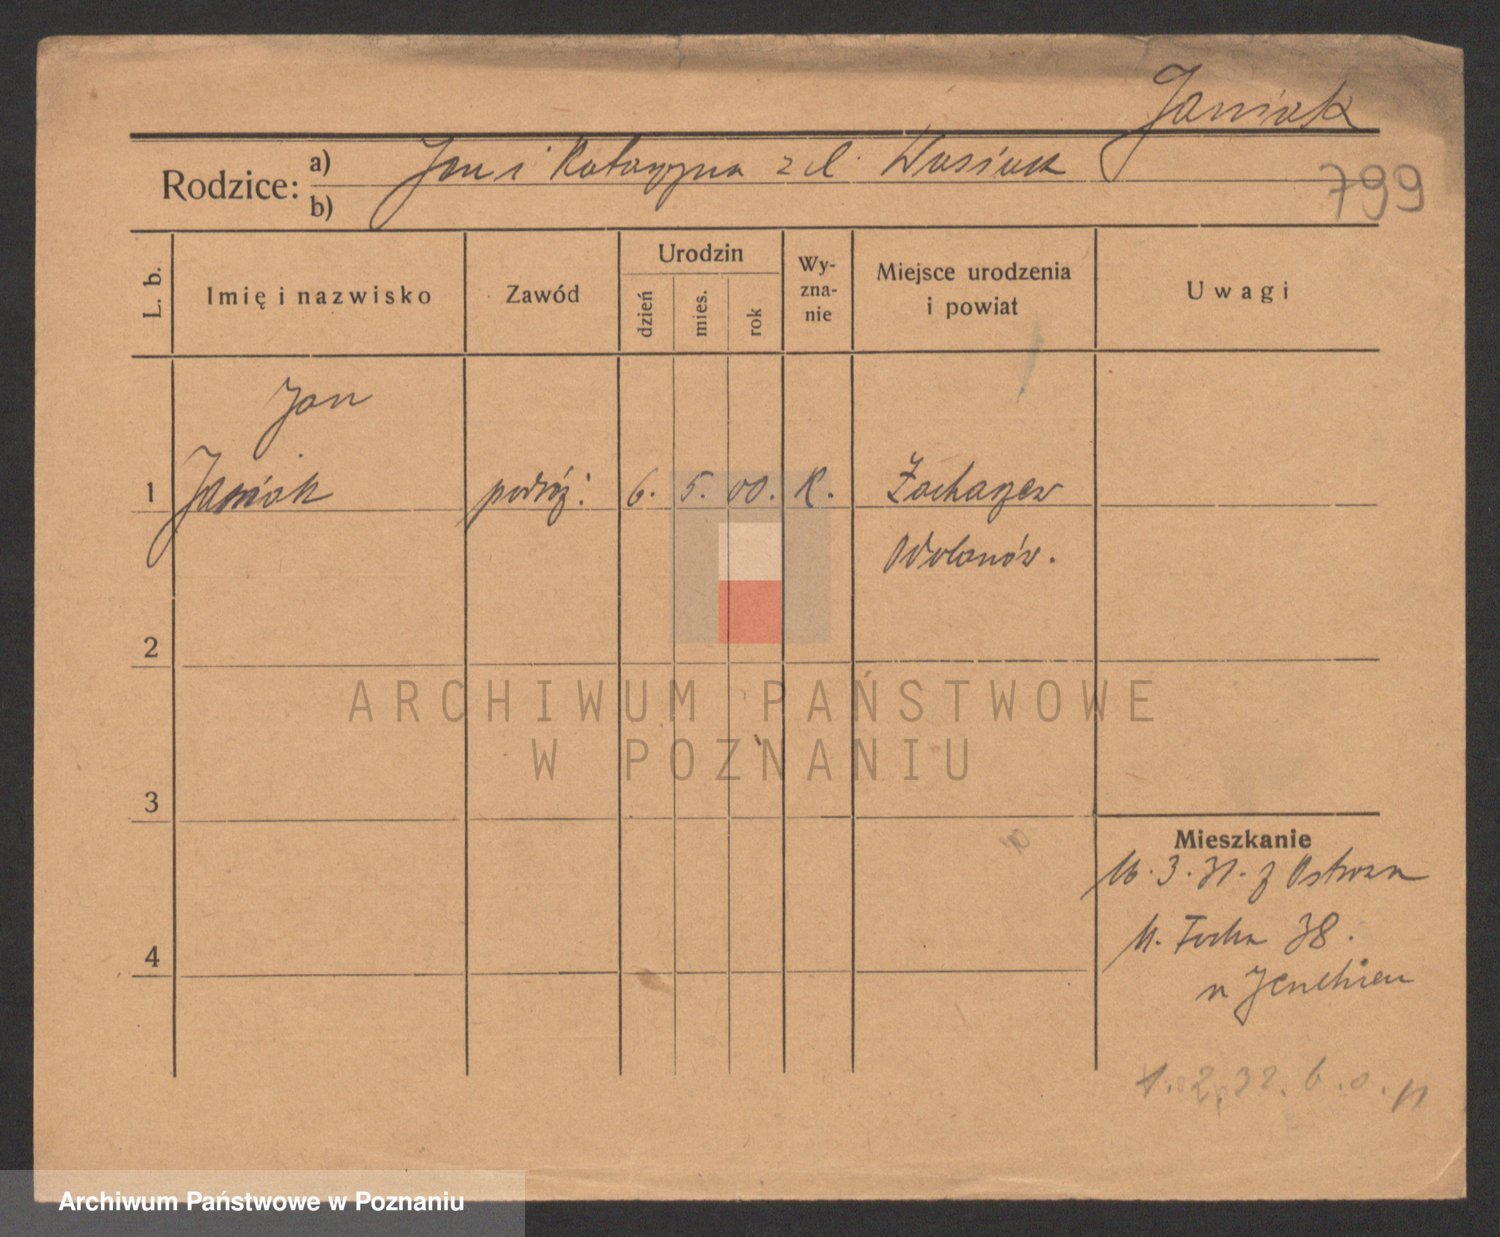 Janiak
Rodzice: a) Jan i Katarzyna z d. Wasiak
b)
799
L. b.
Imię i nazwisko
Zawód
Urodzin
dzień
mies.
rok
Wy-
zna-
nie
Miejsce urodzenia
i powiat
Uwagi
Jan
1 Janiak podróż: 6. 5. 00. K. Zacharzew
Odolanów.
2
ARCHIWUM PAŃSTWOWE
W POZNANIU
3
Mieszkanie
16. 3. 31. z Ostrowa
Focha 38.
4
1. 2. 32. b. o. n
Archiwum Państwowe w Poznaniu